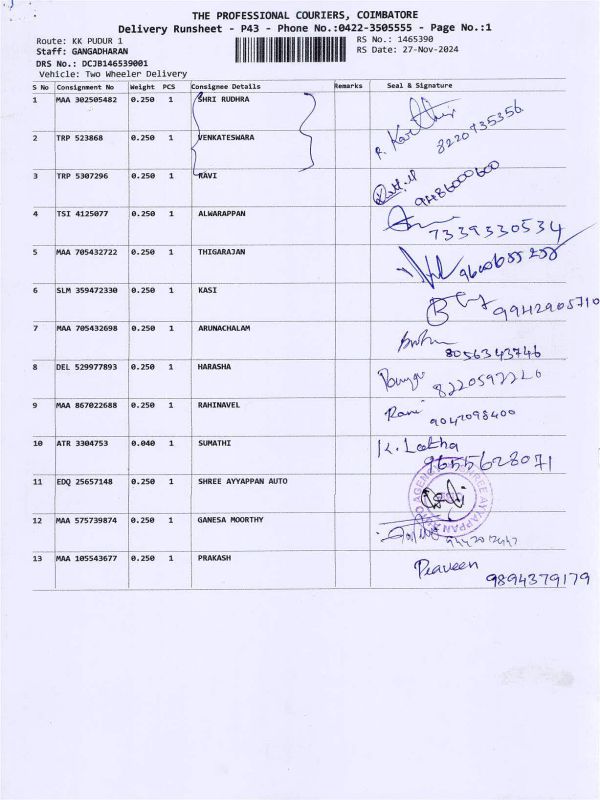 THE PROFESSIONAL COURIERS, COIMBATORE
Delivery Runsheet - P43 - Phone No.:0422-3505555 - Page No.:1
Route: KK PUDUR 1 RS No.: 1465390
Staff: GANGADHARAN RS Date: 27-Nov-2024
DRS No.: DCJB146539001
Vehicle: Two Wheeler Delivery
S No Consignment No Weight PCS Consignee Details Remarks Seal & Signature
1 MAA 302505482 0.250 1 SHRI RUDHRA R. Karthi 8220735356
2 TRP 523868 0.250 1 VENKATESWARA
3 TRP 5307296 0.250 1 RAVI 9486000600
4 TSI 4125077 0.250 1 ALWARAPPAN 7339530534
5 MAA 705432722 0.250 1 THIGARAJAN
6 SLM 359472330 0.250 1 KASI 9942905710
7 MAA 705432698 0.250 1 ARUNACHALAM 8056343746
8 DEL 529977893 0.250 1 HARASHA
9 MAA 867022688 0.250 1 RAHINAVEL Rani 9047098400
10 ATR 3304753 0.040 1 SUMATHI K. Latha 9655628071
11 EDQ 25657148 0.250 1 SHREE AYYAPPAN AUTO SHREE AYYAPPAN AUTO AGENCY
12 MAA 575739874 0.250 1 GANESA MOORTHY
13 MAA 105543677 0.250 1 PRAKASH Praveen 9894379179